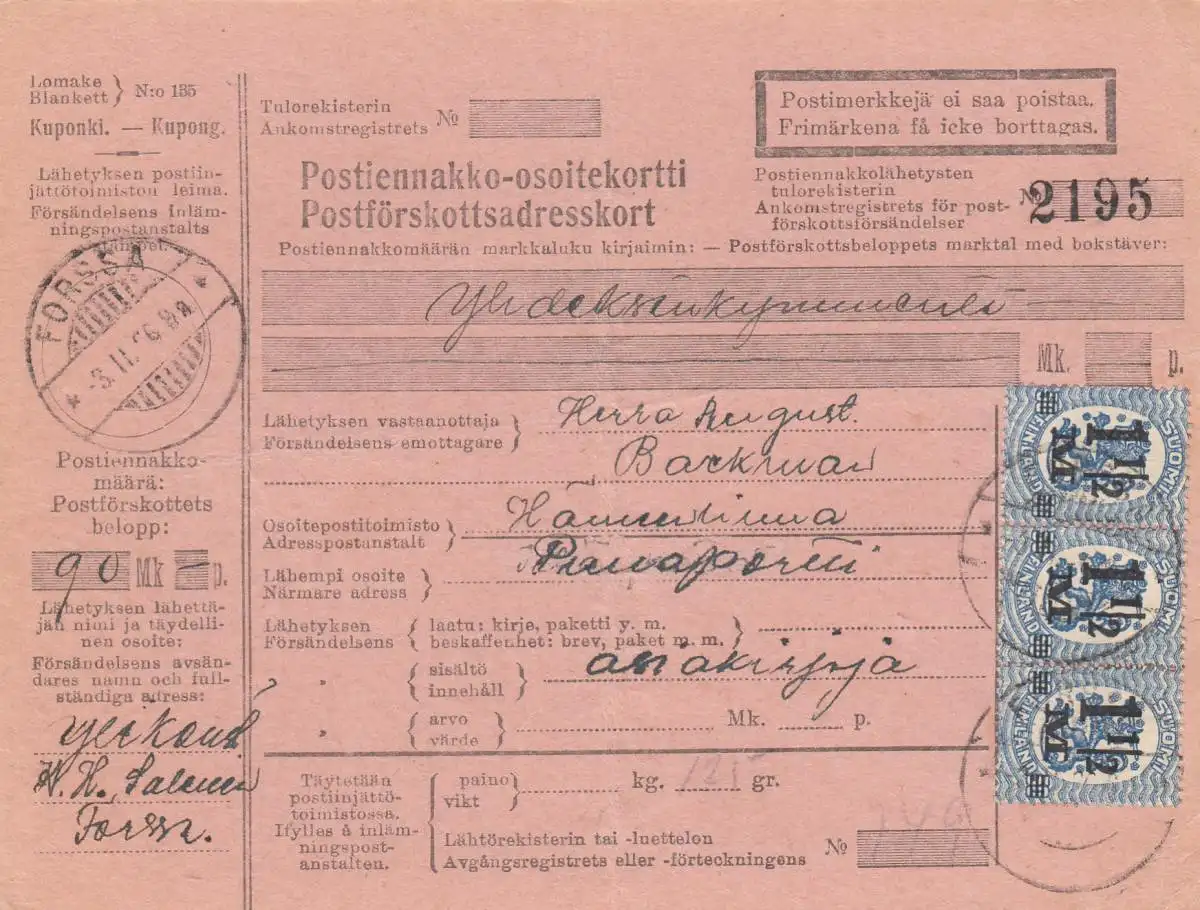 Lomake
Blankett } N:o 135
Kuponki. — Kupong.
Lähetyksen postiin-
jättötoimiston leima.
Försändelsens inläm-
ningspostanstalts
stämpel.
FORSSA
-3.II.26.9a
Postiennakko-
määrä:
Postförskottets
belopp:
90 Mk — p.
Lähetyksen lähettä-
jän nimi ja täydelli-
nen osoite:
Försändelsens avsän-
dares namn och full-
ständiga adress:
H. H.
Forssa.
Tulorekisterin
Ankomstregistrets № 
Postimerkkejä ei saa poistaa.
Frimärkena få icke borttagas.
Postiennakko-osoitekortti
Postförskottsadresskort
Postiennakkolähetysten
tulorekisterin
Ankomstregistrets för post-
förskottsförsändelser
№ 2195
Postiennakkomäärän markkaluku kirjaimin: — Postförskottsbeloppets marktal med bokstäver:
Yhdeksänkymmentä —
Mk. p.
Lähetyksen vastaanottaja
Försändelsens emottagare } Herra August.
Backman
Osoitepostitoimisto
Adresspostanstalt } Hämeenlinna
Lähempi osoite
Närmare adress }
Lähetyksen
Försändelsens { laatu: kirje, paketti y. m.
beskaffenhet: brev, paket m. m. }
" { sisältö
innehåll } asiakirjoja
" { arvo
värde } Mk. p.
Täytetään
postiinjättö-
toimistossa.
Ifylles å inläm-
ningspost-
anstalten.
paino
vikt } kg. gr.
Lähtörekisterin tai -luettelon
Avgångsregistrets eller -förteckningens № 
SUOMI FINLAND
1 1/2 M
SUOMI FINLAND
1 1/2 M
SUOMI FINLAND
1 1/2 M